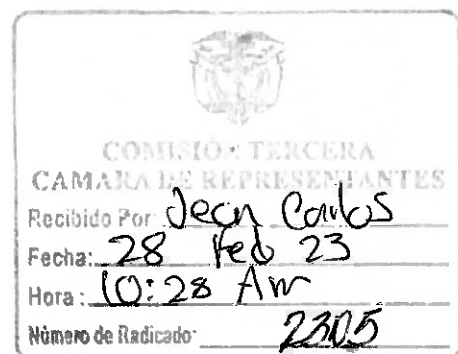 COMISIÓN TERCERA
CAMARA DE REPRESENTANTES
Recibido Por: Jean Carlos
Fecha: 28 Feb 23
Hora: 10:28 Am
Número de Radicado: 2305